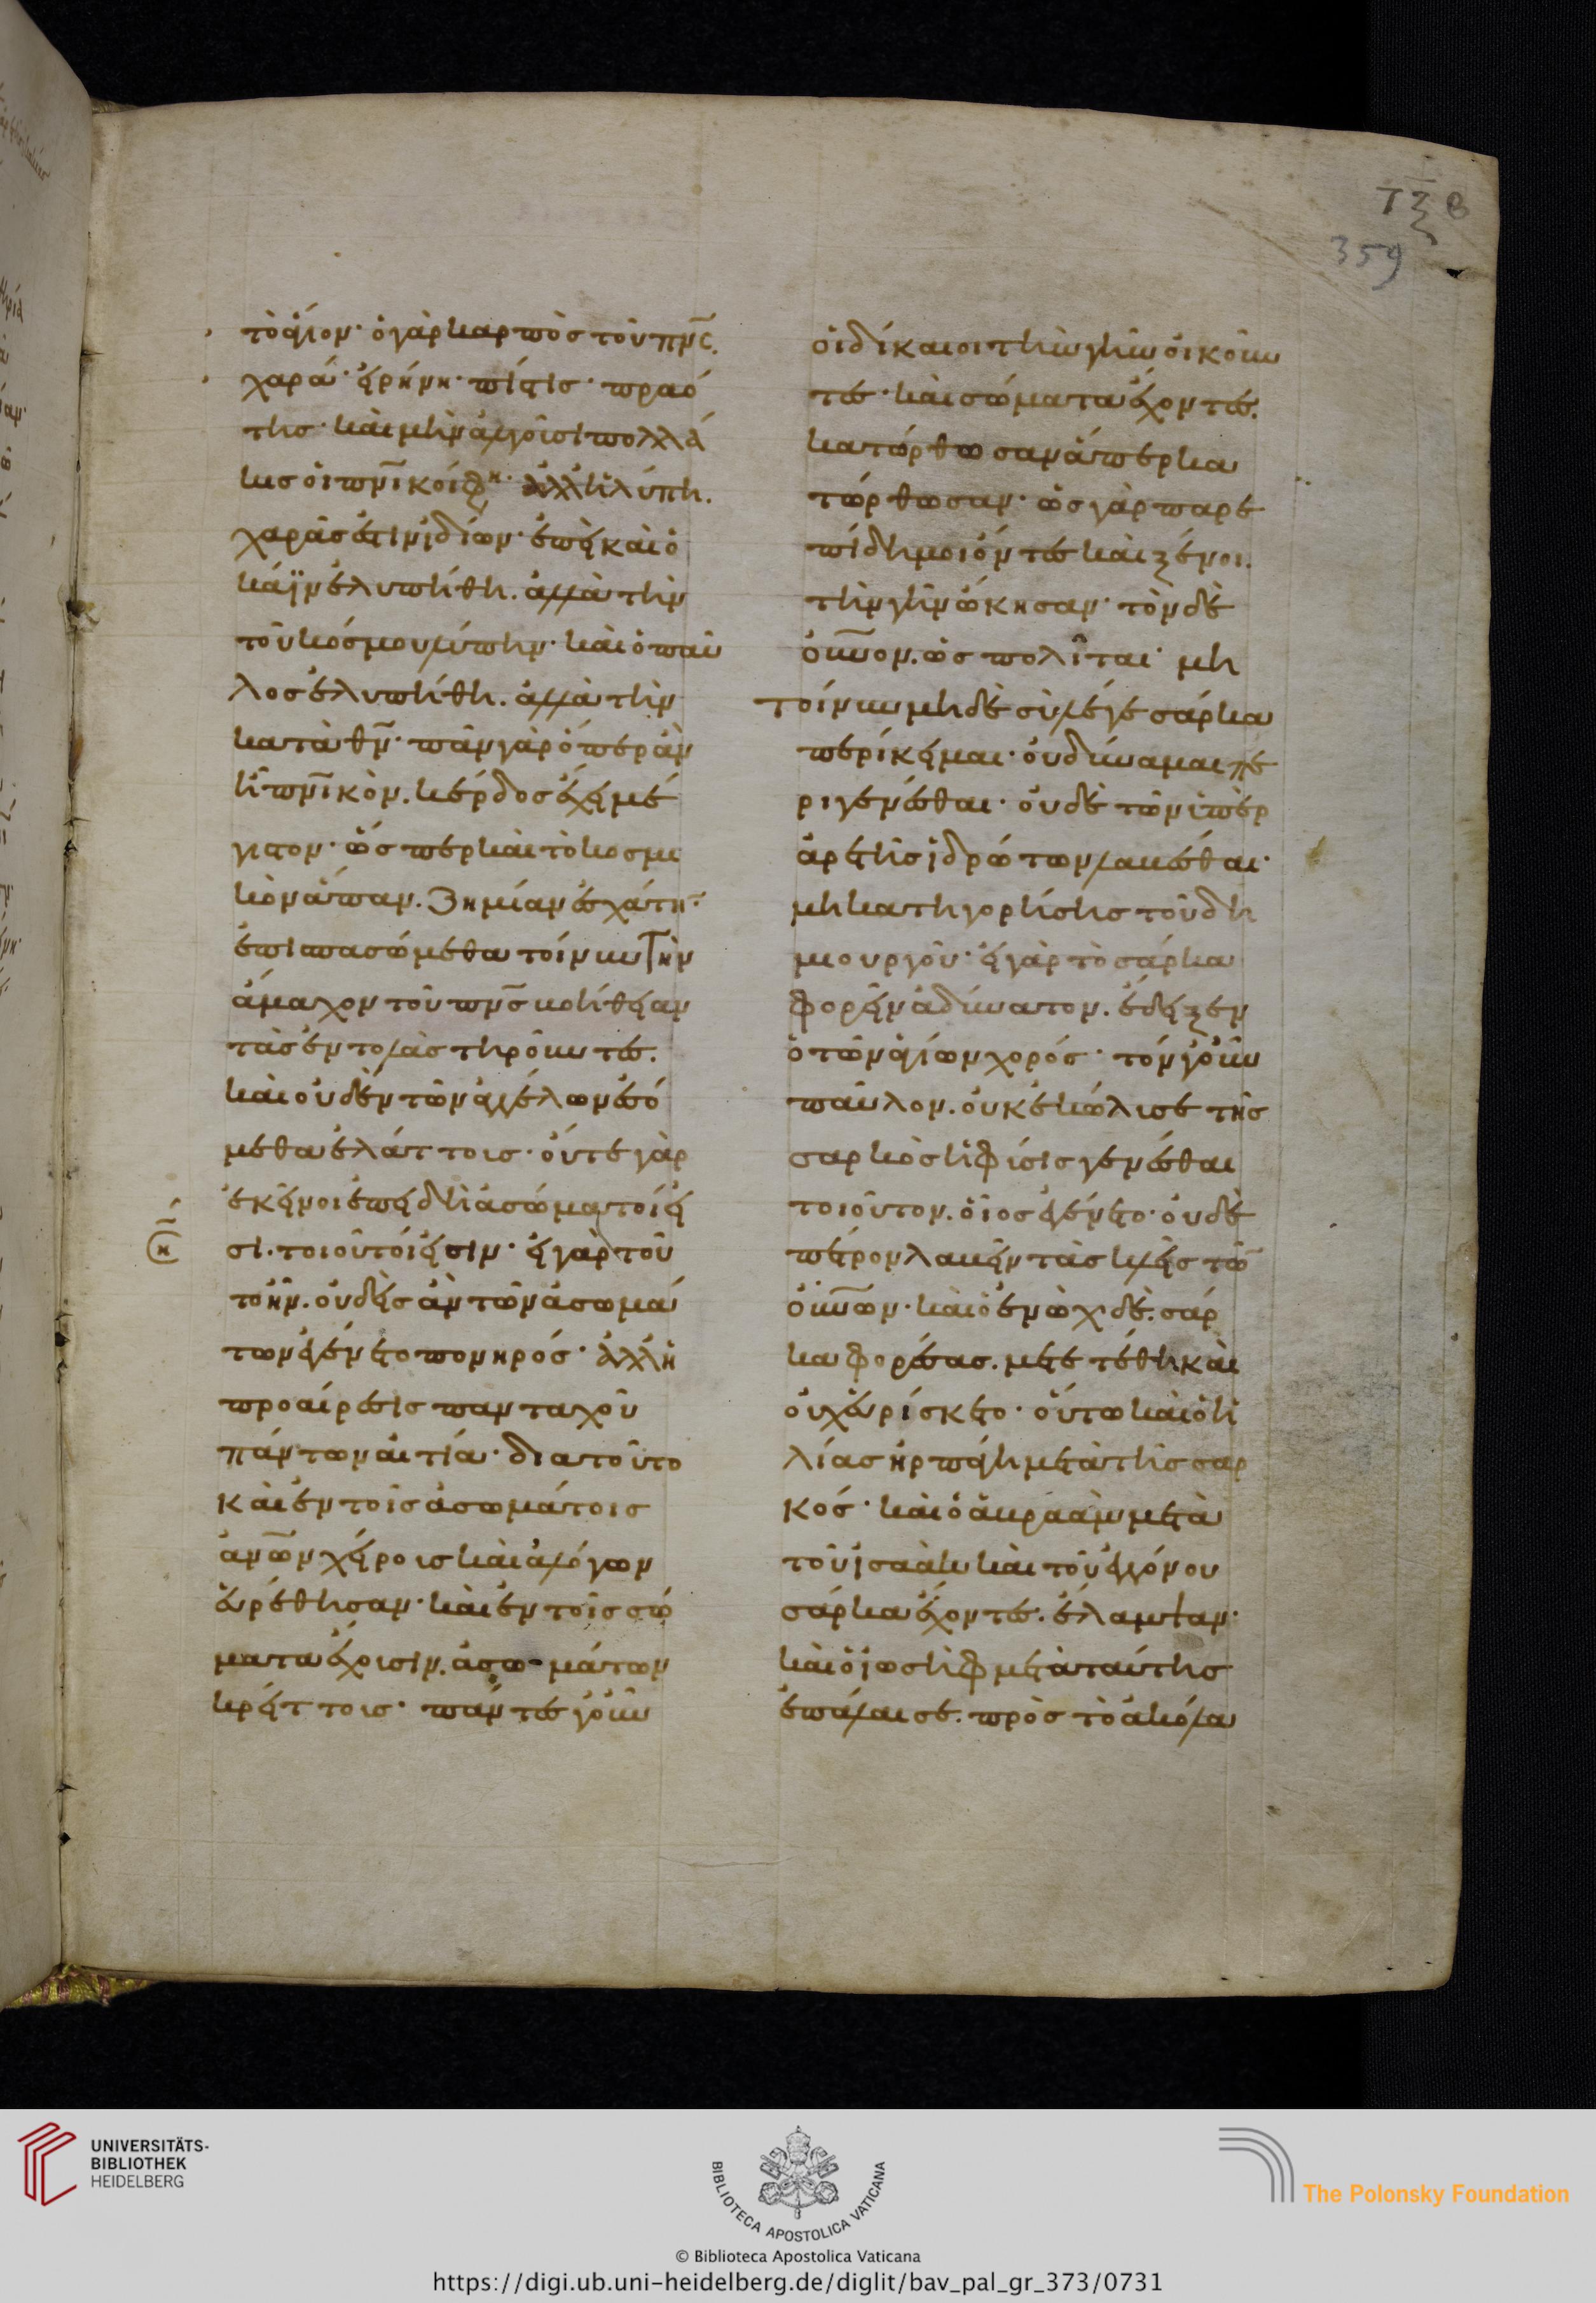 ΤΞΒ
359
τὸ ἅγιον· ὁ γὰρ καρπὸς τοῦ πν̅ς.
χαρά· εἰρήνη· πίστις· πραό
της· καὶ μὴν ἀλγοῦσι πολλά
κις οἱ πν̅ικοί φη· ἀλλ' ἡ λύπη.
χαρᾶς ἐστιν ἡδίων· ἐπεὶ καὶ ὁ
κάϊν ἐλυπήθη. ἀλλὰ τὴν
τοῦ κόσμου λύπην· καὶ ὁ παῦ
λος ἐλυπήθη. ἀλλὰ τὴν
κατὰ θν̅· πᾶν γὰρ ὅπερ ἂν
ἦ πν̅ικὸν. κέρδος ἔχει μέ
γιστον· ὥσπερ καὶ τὸ κοσμι
κὸν ἅπαν. ζημίαν ἐσχάτη̅·
ἐπισπασώμεθα τοίνυν τὴν
ἄμαχον τοῦ πν̅ς βοήθειαν
τὰς ἐντολὰς τηροῦντες.
καὶ οὐδὲν τῶν ἀγγέλων ἐσό
μεθα ἐλάττους· οὔτε γὰρ
ἐκεῖνοι ἐπειδὴ ἀσώματοί εἰ
σι. τοιοῦτοί εἰσιν· εἰ γὰρ τοῦ
το ἦν. οὐδεὶς ἂν τῶν ἀσωμά
των ἐγένετο πονηρός· ἀλλ' ἡ
προαίρεσις πανταχοῦ
πάντων αἰτία· διατοῦτο
καὶ ἐν τοῖς ἀσωμάτοις
ἀν̅ων χείρους καὶ ἀλόγων
εὑρέθησαν· καὶ ἐν τοῖς σώ
ματα ἔχουσιν. ἀσωμάτων
κρείττους· πάντες γοῦν
οἱ δίκαιοι τὴν γῆν οἰκοῦν
τες· καὶ σώματα ἔχοντες.
κατώρθωσαν ἅπερ κα
τώρθωσαν· ὡς γὰρ παρε
πίδημοι ὄντες καὶ ξένοι.
τὴν γῆν ᾤκησαν· τὸν δὲ
οὐν̅ον. ὡς πολῖται· μὴ
τοίνυν μηδὲ σὺ λέγε σάρκα
περίκειμαι· οὐ δύναμαι πε
ριγενέσθαι· οὐδὲ τῶν ὑπὲρ
ἀρετῆς ἱδρώτων λαβέσθαι·
μὴ κατηγορήσης τοῦ δη
μιουργοῦ· εἰ γὰρ τὸ σάρκα
φορεῖν ἀδύνατον. ἔδειξεν
ὁ τῶν ἁγίων χορός· τὸν γοῦν
παῦλον. οὐκ ἐκώλυσε τῆς
σαρκὸς ἡ φύσις γενέσθαι
τοιοῦτον. οἷος ἐγένετο· οὐδὲ
πέτρον λαβεῖν τὰς κλεῖς τῶ̅
οὐν̅ων· καὶ ὁ ἐνὼχ δὲ. σάρ
κα φορέσας. μετετέθη καὶ
οὐχ εὑρίσκετο· οὕτω καὶ ὁ ἡ
λίας ἡρπάγη μετὰ τῆς σαρ
κός· καὶ ὁ ἀβραὰμ μετὰ
τοῦ ἰσαὰκ καὶ τοῦ ἐγγόνου
σάρκα ἔχοντες. ἔλαμψαν·
καὶ ὁ ἰωσὴφ μετὰ ταύτης
ἐπάλαισε. πρὸς τὸ ἀκόλα
UNIVERSITÄTS-
BIBLIOTHEK
HEIDELBERG
BIBLIOTECA APOSTOLICA VATICANA
The Polonsky Foundation
© Biblioteca Apostolica Vaticana
https://digi.ub.uni-heidelberg.de/diglit/bav_pal_gr_373/0731